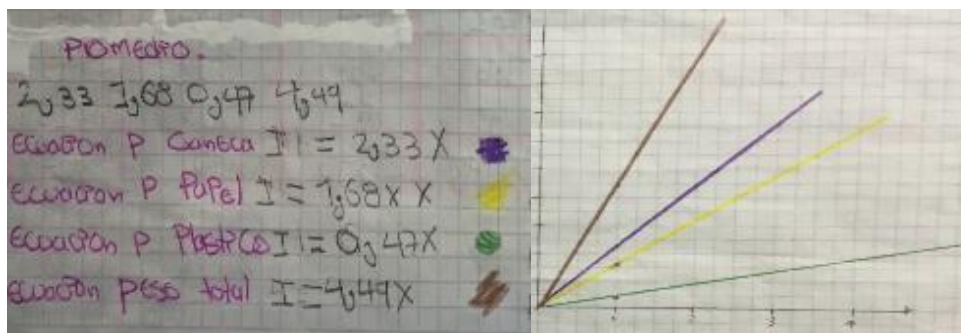 Promedio.
2,33 1,68 0,47 4,49
Ecuacion P Caneca I = 2,33 X
Ecuacion P Papel I = 1,68x X
Ecuacion P Plastico I = 0,47X
Ecuacion peso total I = 4,49X
1 2 3 4